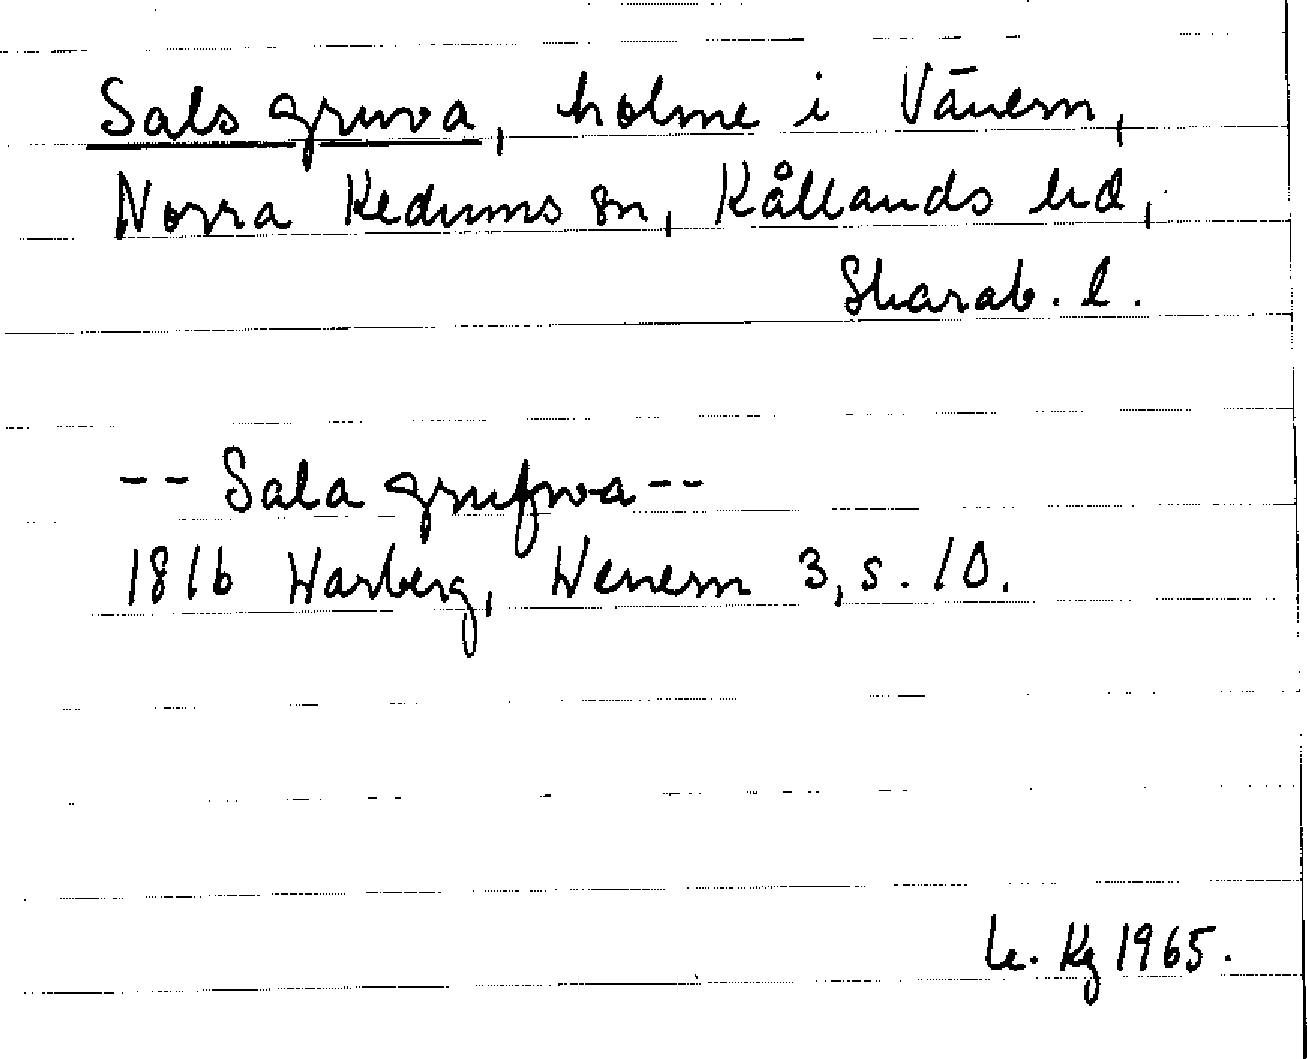 Sals gruva, holme i Vänern,
Norra Kedums sn, Kållands hd,
Skarab. l.
-- Sala grufwa --
1816 Warberg, Wenern 3, s. 10.
Kg 1965.